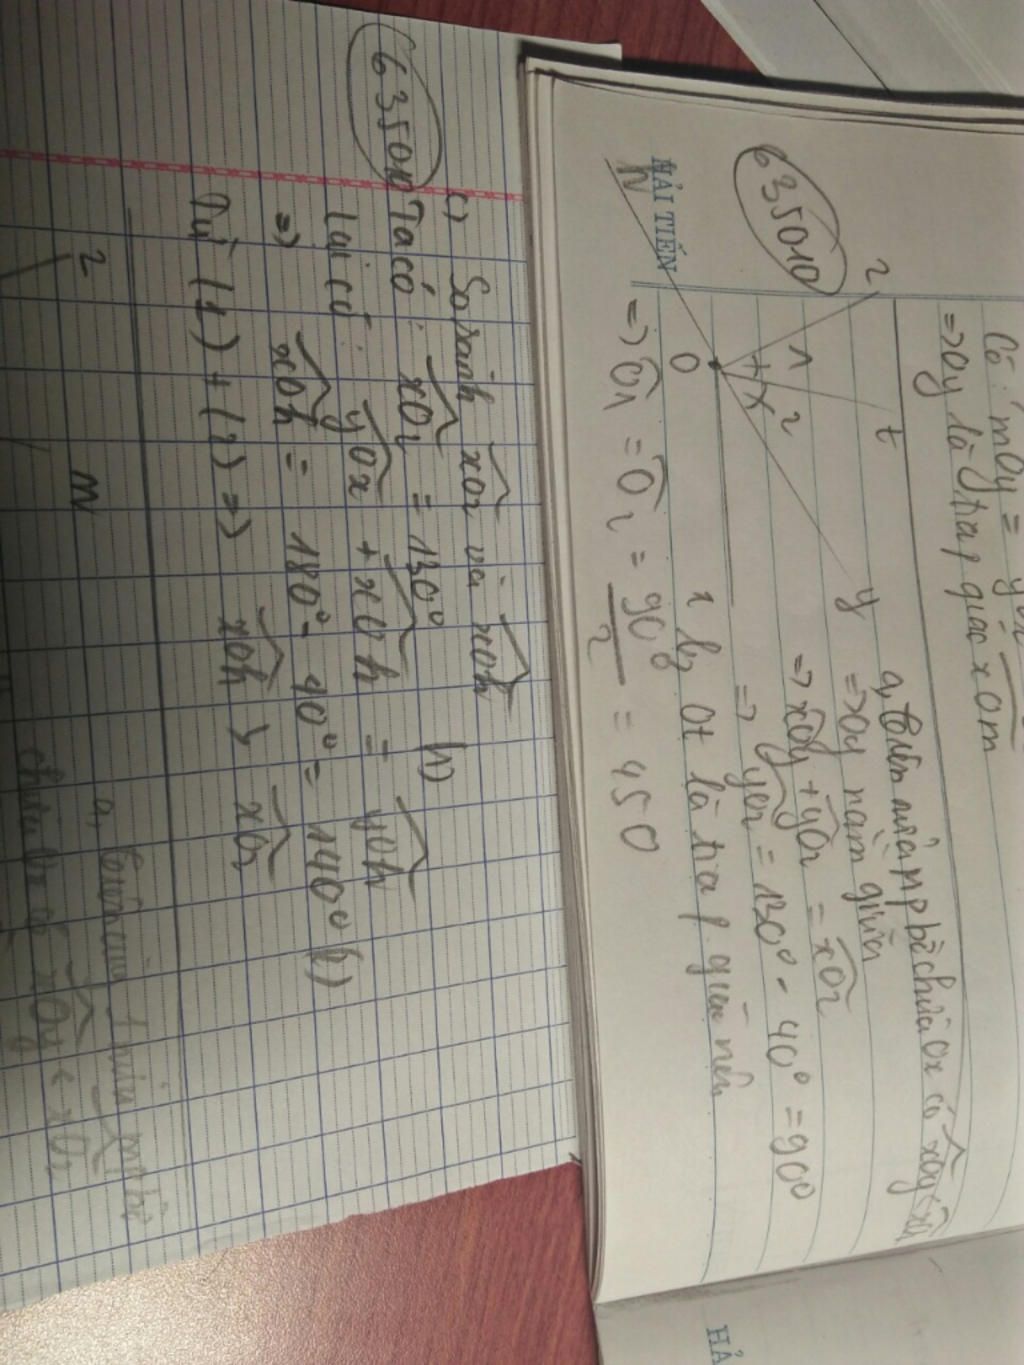 Có: mOy =
=> Oy là tia p giác xOm
635010
HẢI TIẾN
z
t
y
1
2
O
x
h
a, Trên nửa mp bờ chứa Ox có xOy <
=> Oy nằm giữa
=> xOy + yOz = xOz
=> yOz = 130° - 40° = 90°
b, Ot là tia p. giác nên
=> O1 = O2 = 90°/2 = 450
HẢ
635010
c) So sánh xOz và xOh
Ta có: xOz = 130° (1)
Lại có: yOx + xOh = yOh
=> xOh = 180° - 40° = 140° (2)
Từ (1) + (2) => xOh > xOz
z
m
a,
chứa Ox có xOy < xOz